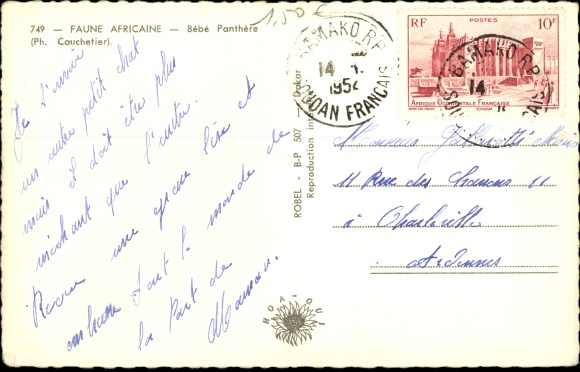 749 — FAUNE AFRICAINE — Bébé Panthère
(Ph. Cauchetier).
1,50 €
Je t'envoie
un autre petit chat
mais il doit être plus
méchant que l'autre.
Reçois une grosse bise et
embrasse tout le monde de
la part de
ROBEL - B-P 507 - Dakar
Reproduction
HOA-QUI
BAMAKO R.P.
14
1952
SOUDAN FRANÇAIS
RF
POSTES
10F
AFRIQUE OCCIDENTALE FRANÇAISE
BAMAKO R.P.
14
Monsieur
11 Rue des 11
à Charleville
Ardennes